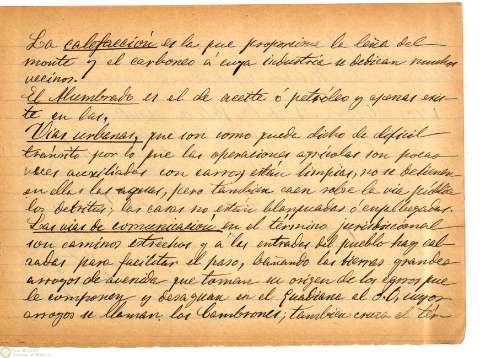 La calefacción es la que proporciona la leña del
monte y el carboneo á cuya industria se dedican muchos
vecinos.
El Alumbrado es el de aceite ó petróleo y apenas exis-
te en las,
Vias urbanas, que son como puede dicho de dificil
tránsito por lo que las operaciones agricolas son pocas
veces auxiliadas con carros, estan limpias, no se detienen
en ellas las aguas, pero tambien caen sobre la via publica
los detritus; las casas no están blanqueadas ó enjalbegadas.
Las vias de comunicacion en el término jurisdiccional
son caminos estrechos y á las entradas del pueblo hay cal-
zadas para facilitar el paso, bañando las tierras grandes
arroyos de avenida que toman su origen de los cerros que
le componen y desaguan en el Guadiana al O., cuyos
arroyos se llaman los Cambrones; tambien cruza el tér-